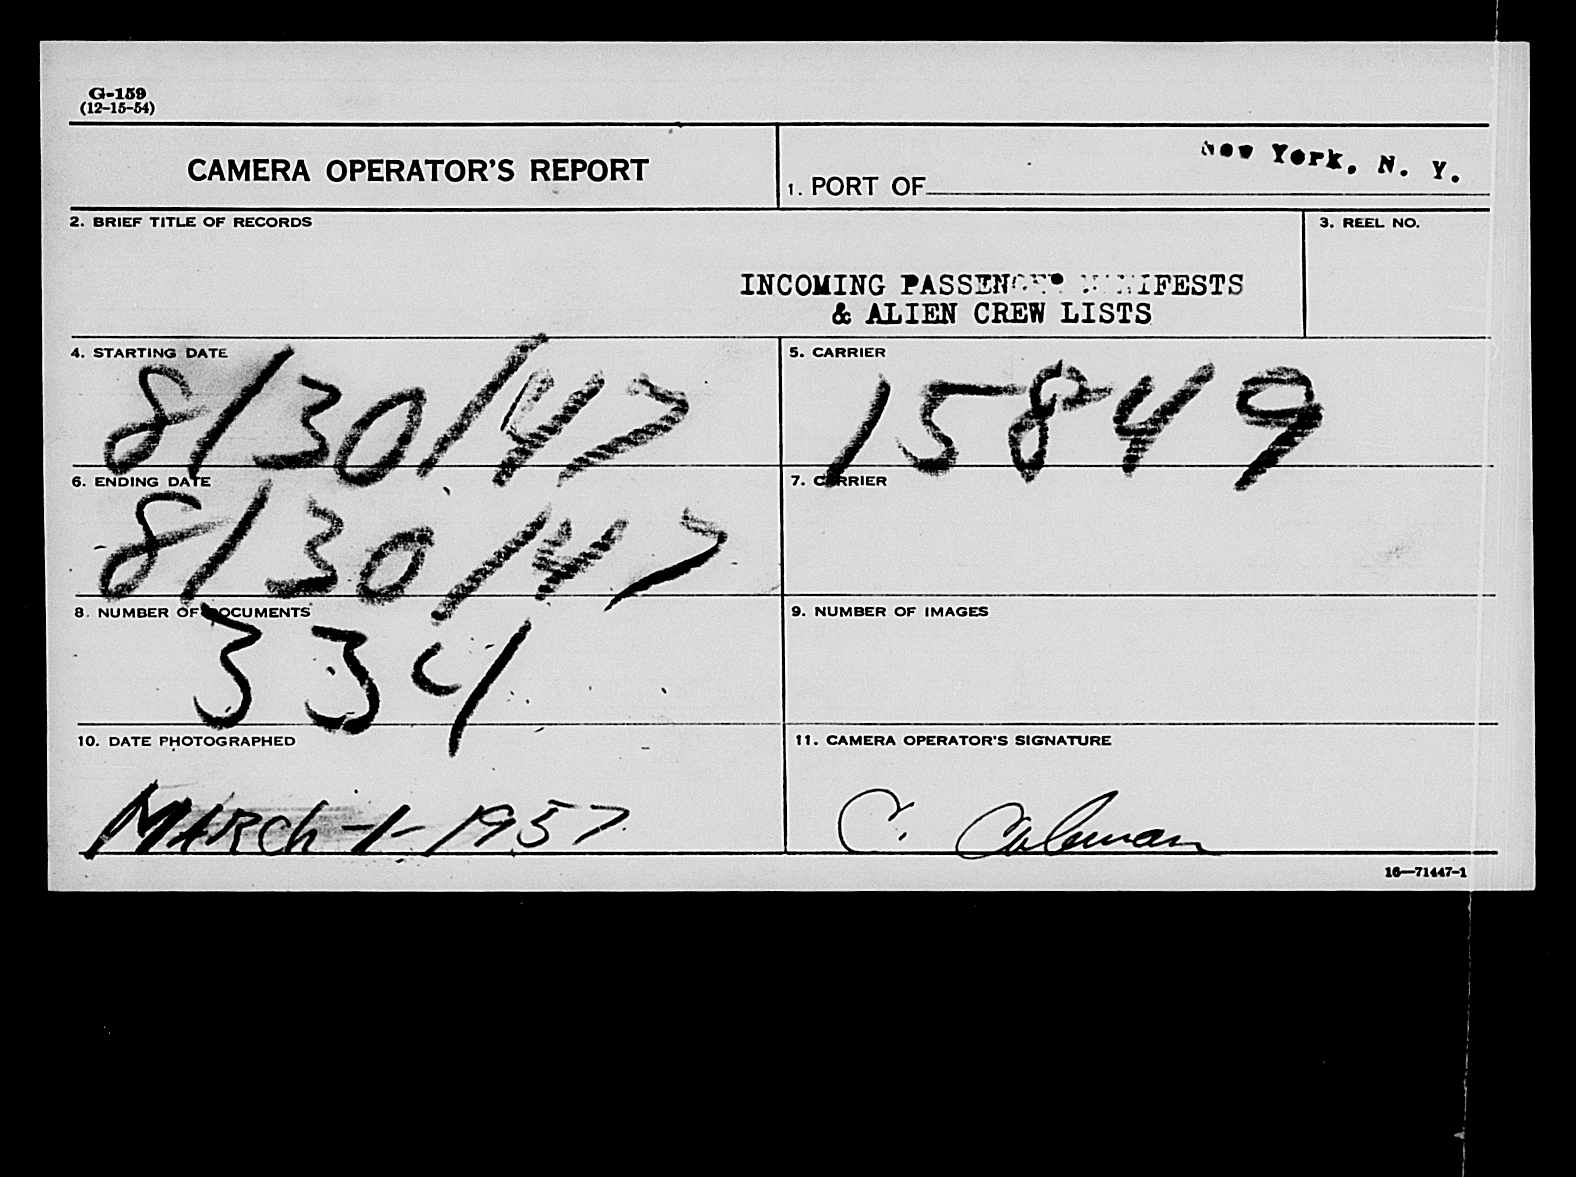 G-159
(12-15-54)
CAMERA OPERATOR'S REPORT
1. PORT OF New York, N. Y.
2. BRIEF TITLE OF RECORDS
3. REEL NO.
INCOMING PASSENGER MANIFESTS
& ALIEN CREW LISTS
4. STARTING DATE
8/30/47
5. CARRIER
15849
6. ENDING DATE
8/30/47
7. CARRIER
8. NUMBER OF DOCUMENTS
334
9. NUMBER OF IMAGES
10. DATE PHOTOGRAPHED
MARCh-1-1957
11. CAMERA OPERATOR'S SIGNATURE
C. Coleman
16—71447-1